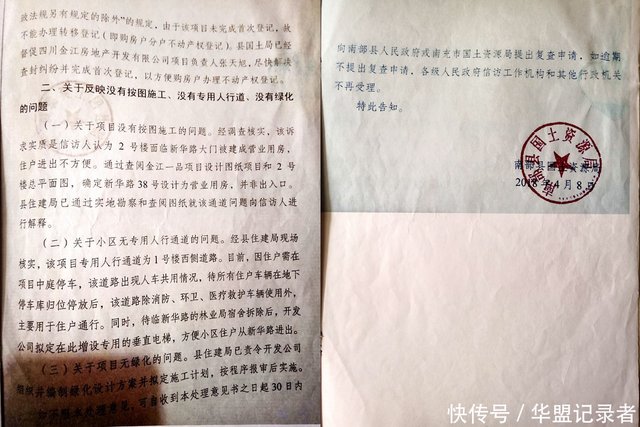 故法规另有规定的除外”的规定，由于该项目未完成首次登记，故
不能办理转移登记（即购房户分户不动产权登记）。县国土局已经
督促四川金江房地产开发有限公司项目负责人张天旭，尽快解决
查封纠纷并完成首次登记，以方便购房户办理不动产权登记。
二、关于反映没有按图施工、没有专用人行道、没有绿化
的问题
（一）关于项目没有按图施工的问题。经调查核实，该诉
求实质是信访人认为2号楼面临新华路大门被建成营业用房，
住户进出不方便。通过查阅金江一品项目设计图纸项目和2号
楼总平面图，确定新华路38号设计为营业用房，并非出入口。
县住建局已通过实地勘察和查阅图纸就该通道问题向信访人进
行解释。
（二）关于小区无专用人行通道的问题。经县住建局现场
核实，该项目专用人行通道为1号楼西侧道路。目前，因住户需在
项目中庭停车，该道路出现人车共用情况，待所有住户车辆在地下
停车库归位停放后，该道路除消防、环卫、医疗救护车辆使用外，
主要用于住户通行。同时，待临新华路的林业局宿舍拆除后，开发
公司拟定在此增设专用的垂直电梯，方便小区住户从新华路进出。
（三）关于项目无绿化的问题。县住建局已责令开发公司
组织并编制绿化设计方案并拟定施工计划，按程序报审后实施。
如不服本处理意见，可自收到本处理意见书之日起30日内
向南部县人民政府或南充市国土资源局提出复查申请，如逾期
不提出复查申请，各级人民政府信访工作机构和其他行政机关
不再受理。
特此告知。
南部县国土资源局
2018年4月8日
南部县国土资源局
快传号／华盟记录者